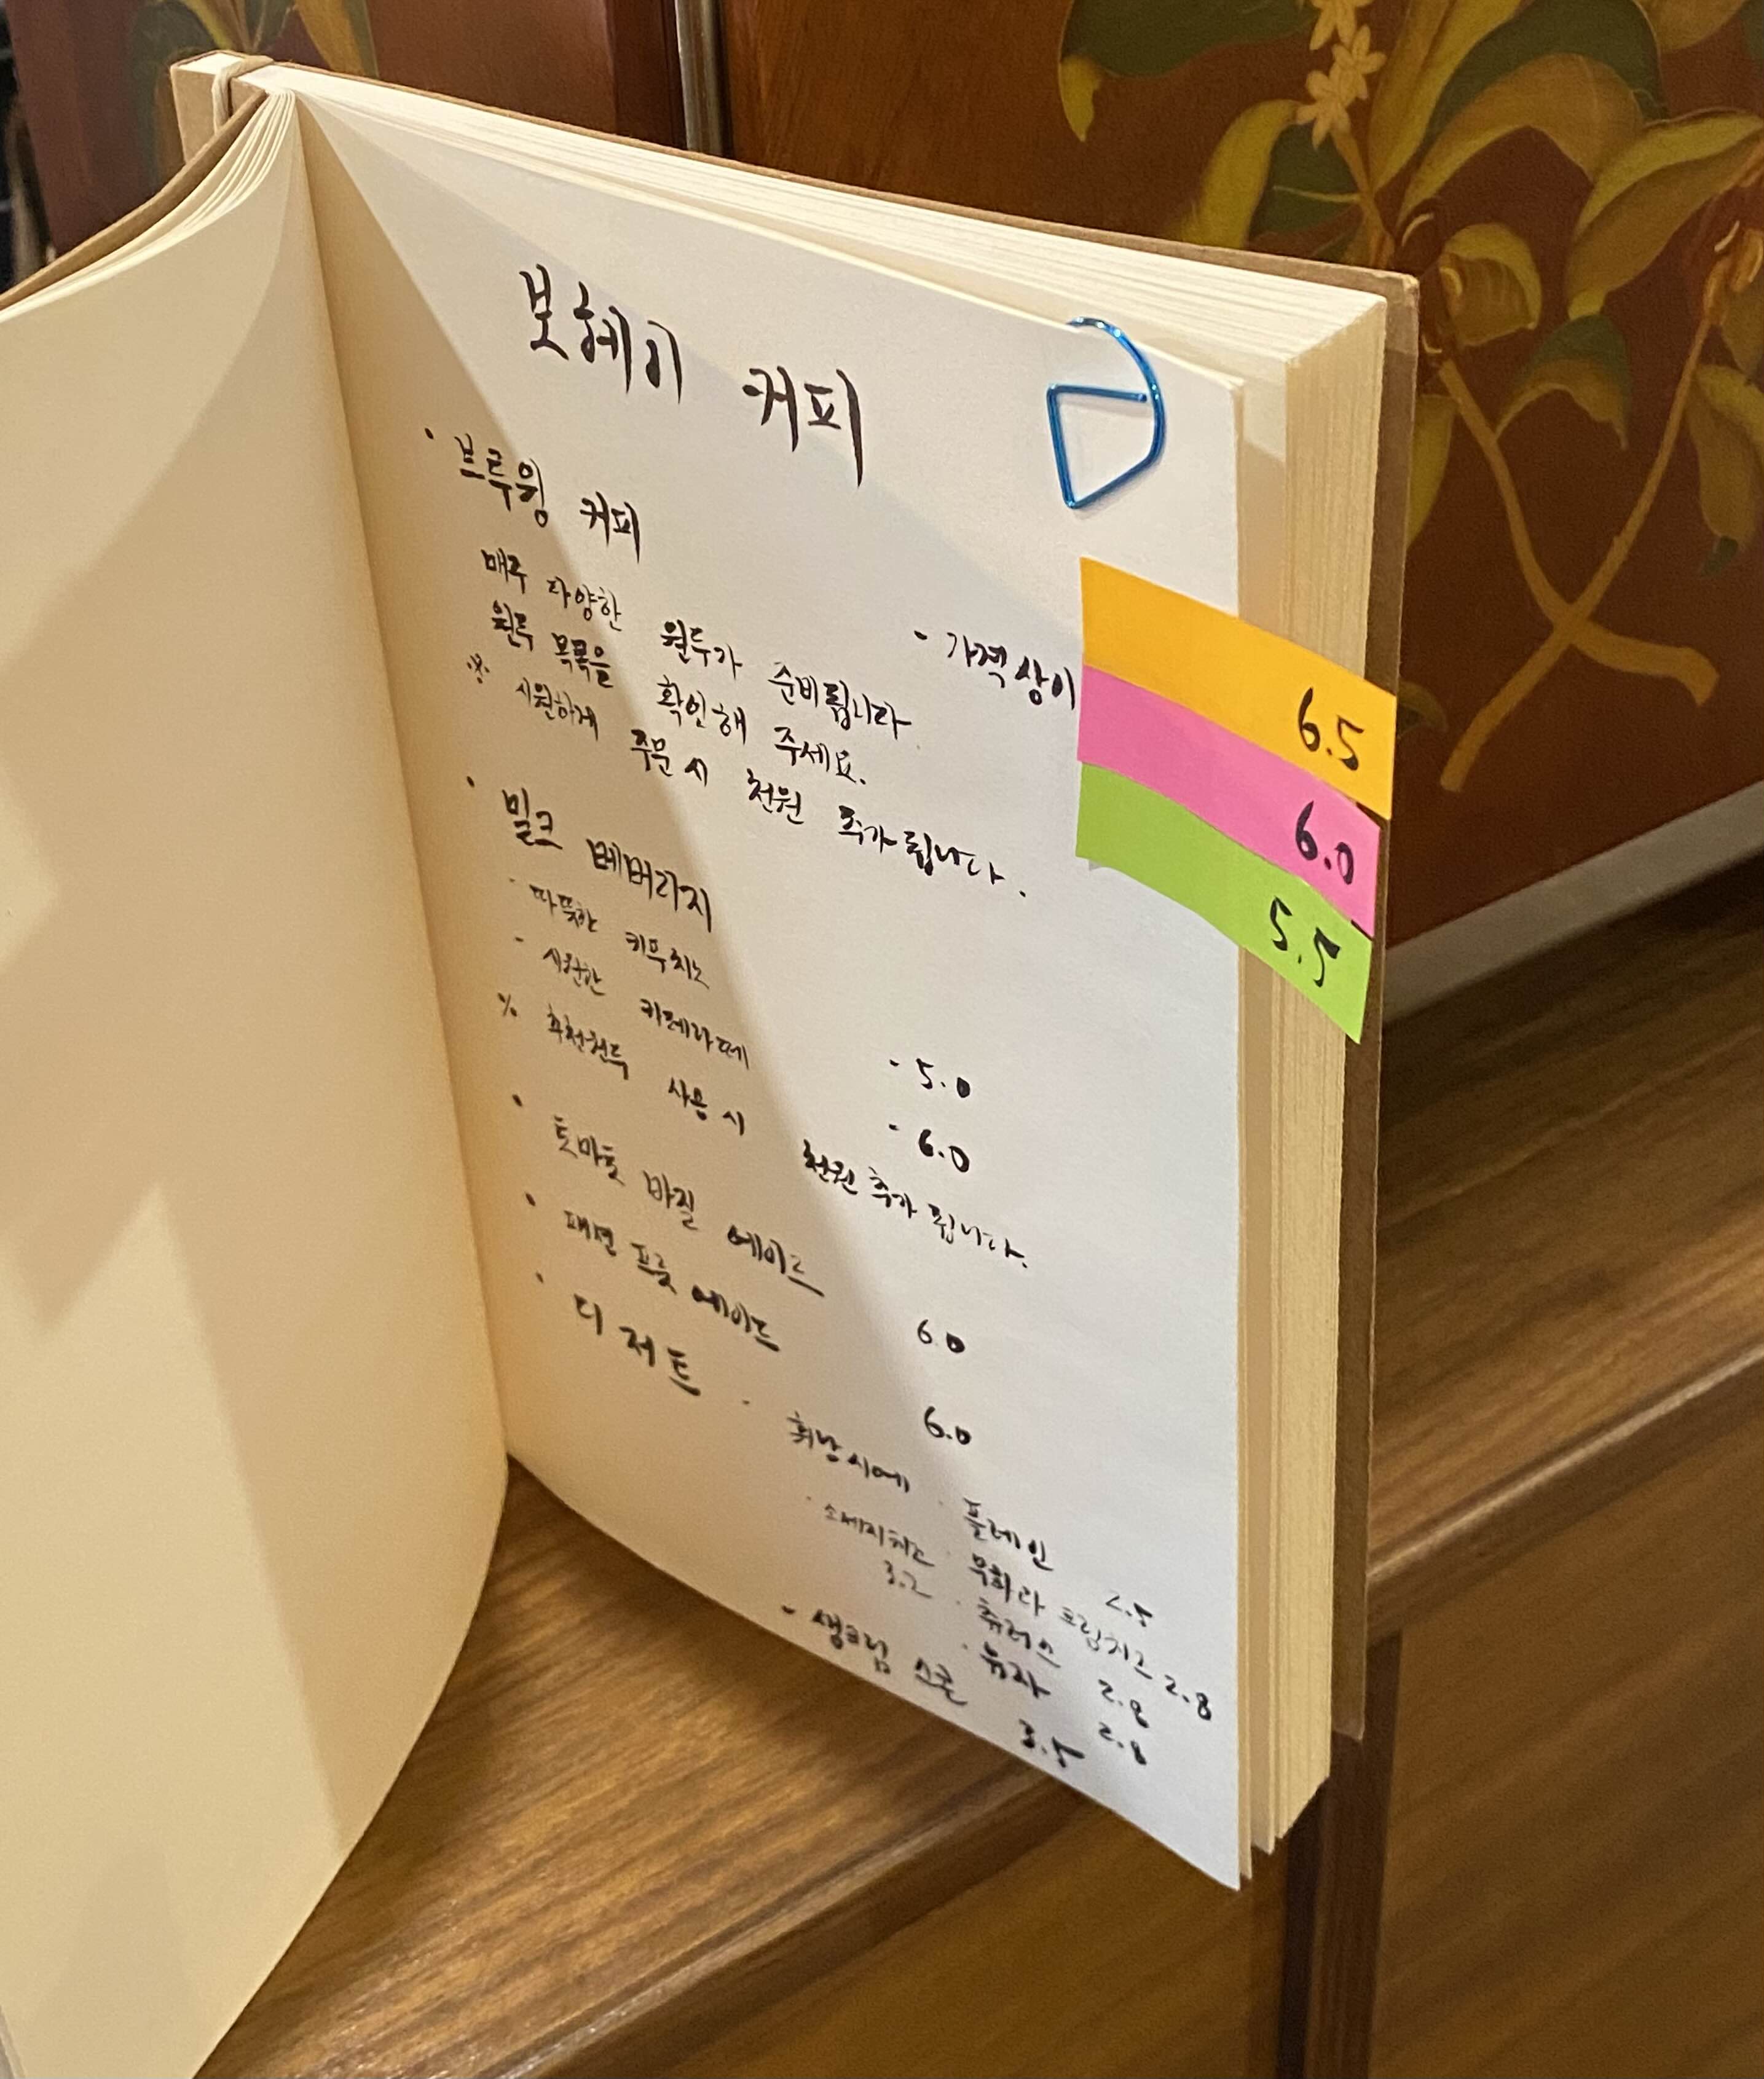 보헤미 커피
· 브루잉 커피
- 가격 상이
매주 다양한 원두가 준비됩니다
원두 목록을 확인해 주세요.
※ 시원하게 주문 시 천원 추가됩니다.
6.5
6.0
5.5
· 밀크 베버리지
- 따뜻한 카푸치노 - 5.0
- 시원한 카페라떼 - 6.0
※ 추천원두 사용 시 천원 추가 됩니다.
· 토마토 바질 에이드 6.0
· 패션 프룻 에이드 6.0
· 디저트
- 휘낭시에
· 플레인 2.5
· 무화과 크림치즈 2.8
· 츄러스 2.8
· 유자 2.8
· 소세지치즈 3.2
- 생크림 스콘 3.5